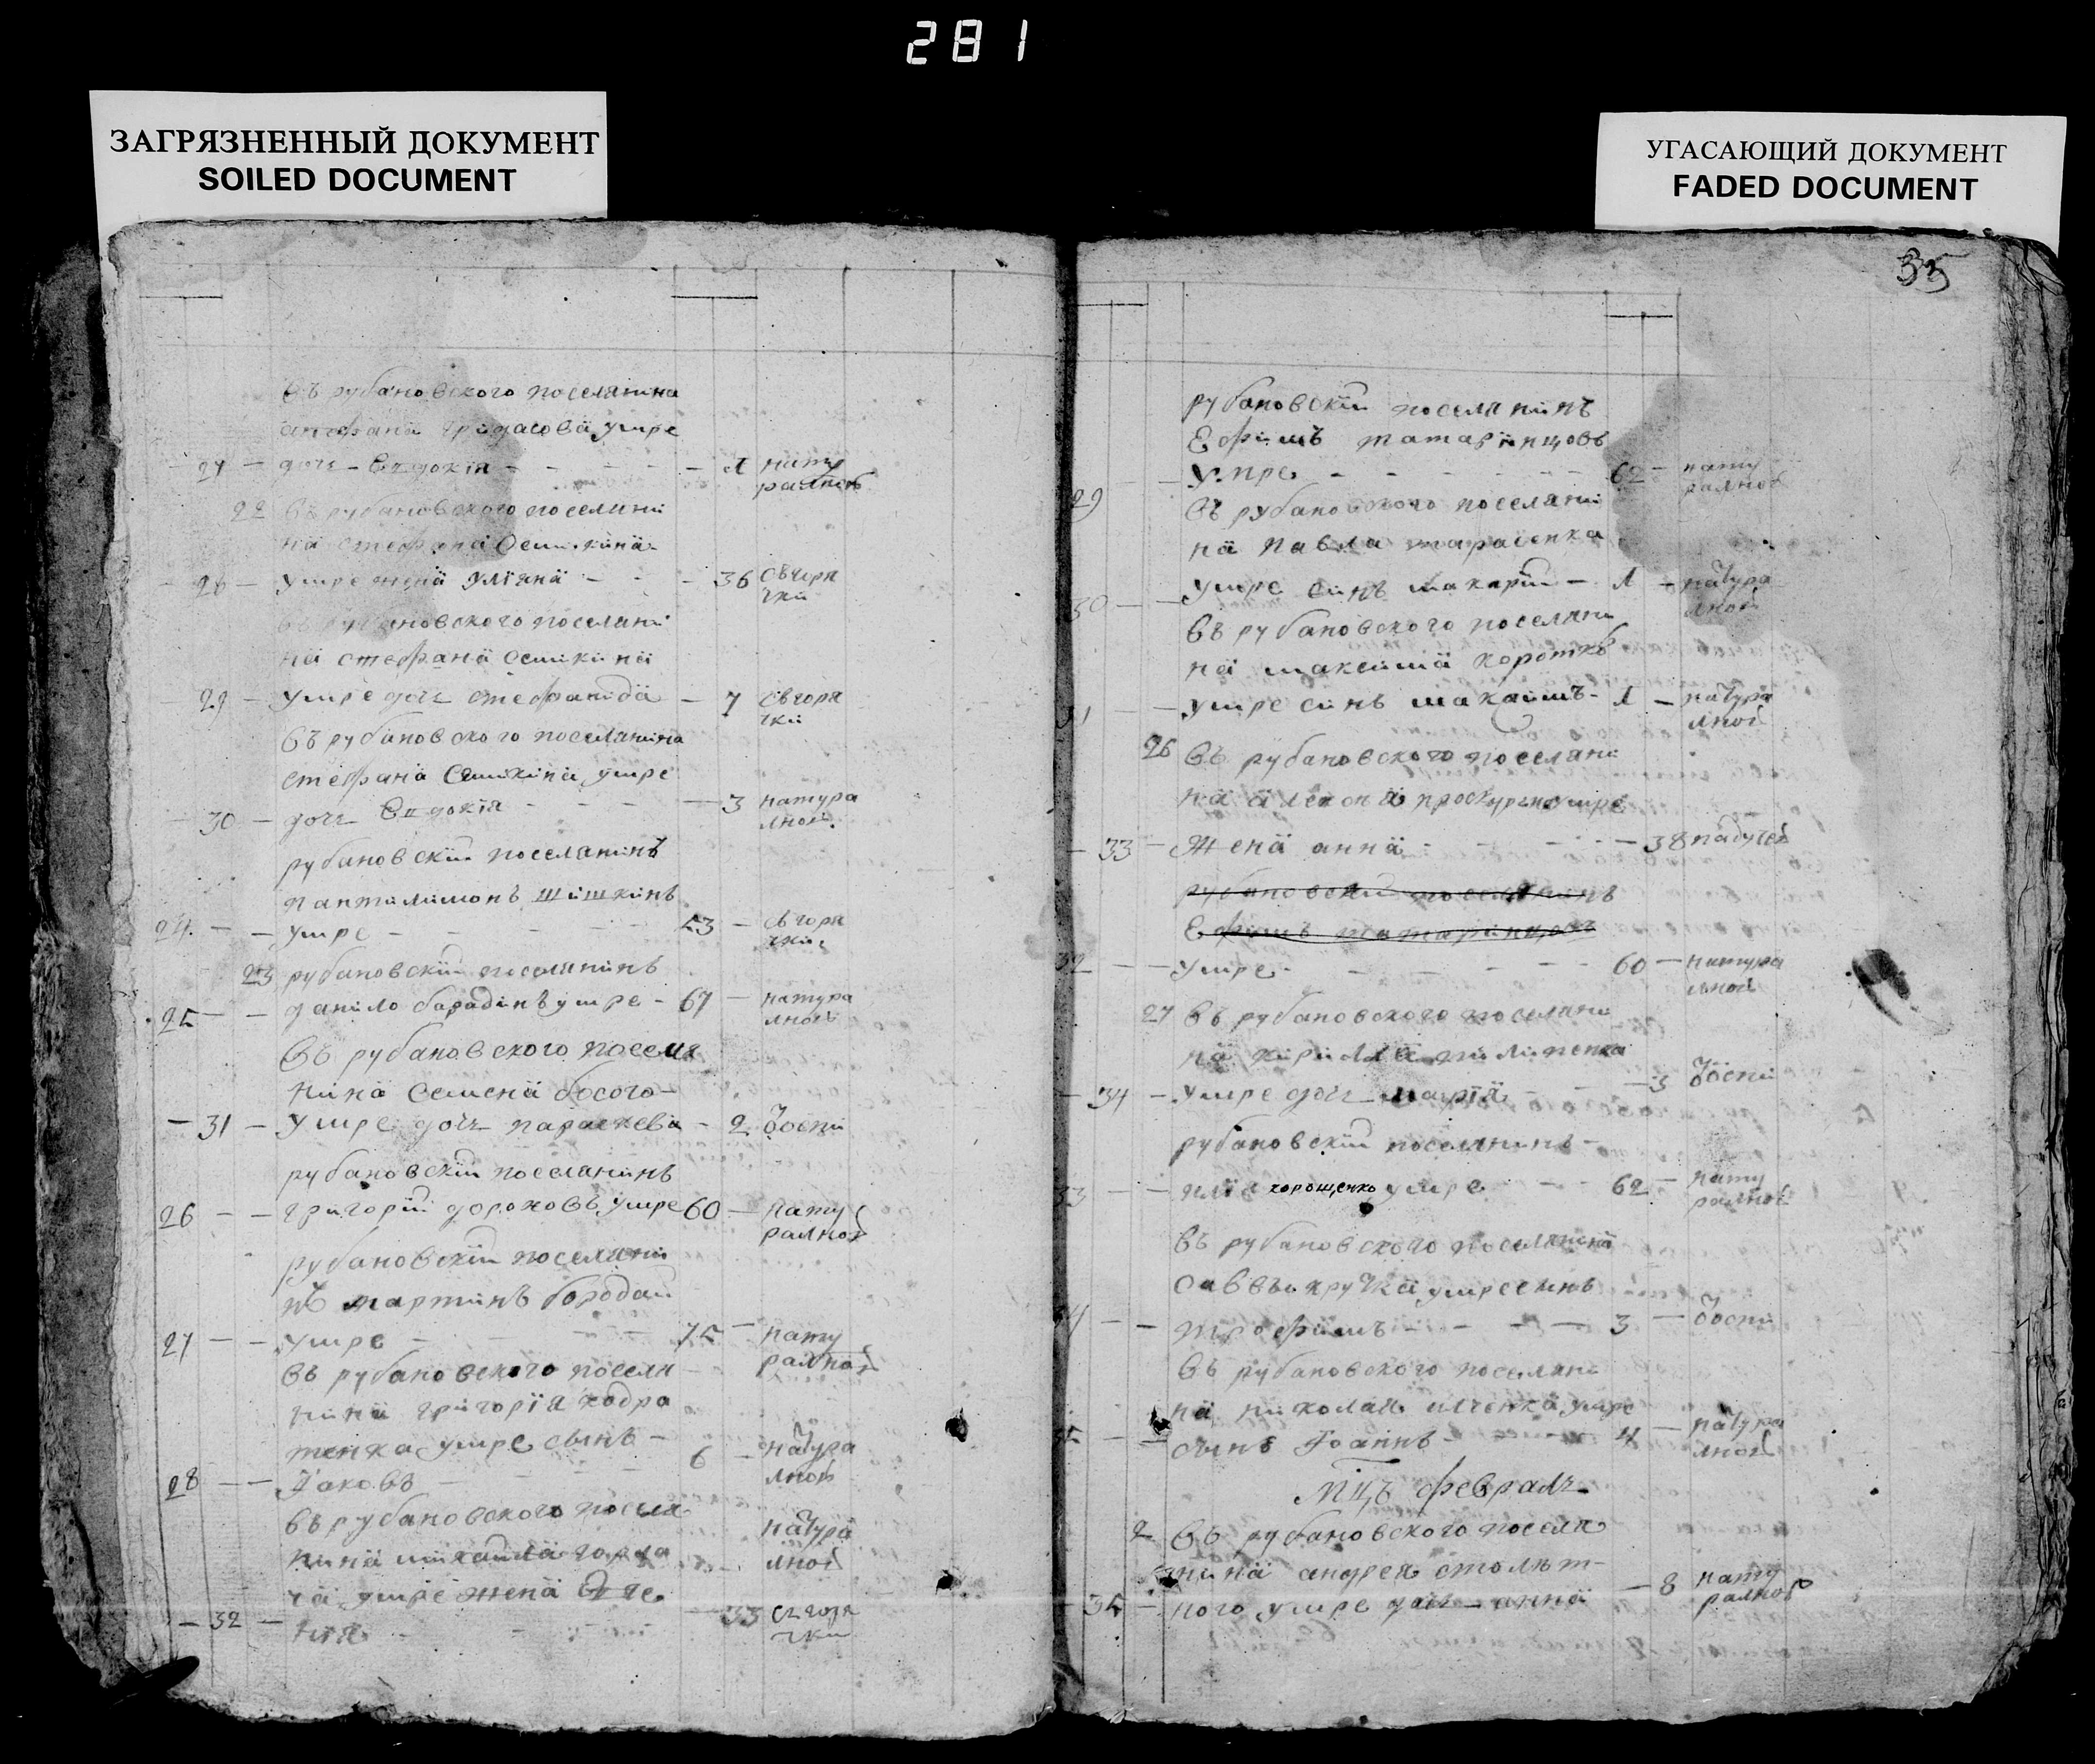 281
ЗАГРЯЗНЕННЫЙ ДОКУМЕНТ
SOILED DOCUMENT
УГАСАЮЩИЙ ДОКУМЕНТ
FADED DOCUMENT
въ рубановского поселянина
умре
27 — дочь — Евдокія — 1 нату
ралной
22 въ рубановского поселяни
на стефана Семикина
28 — умре жена Уліяна — 36 сгоря
чки
въ рубановского поселяни
на стефана Семикина
29 — умре дочь стефанида — 7 сгоря
чки
въ рубановского поселянина
стефана Семикина умре
30 — дочь Евдокія — 3 натура
лной
рубановскій поселянинъ
пантилимонъ шишкинъ
24 — умре — 53 — сгоря
чки
23 рубановскій поселянинъ
25 — данило бородинъ умре — 67 — натура
лной
въ рубановского поселя
нина Семена босого —
— 31 — умре дочь параскева — 2 воспи
рубановскій поселянинъ
26 — григорій дороховъ умре 60 — нату
ралной
рубановскій поселяни
нъ мартинъ бородай
27 — умре — 75 — нату
ралной
въ рубановского поселя
нина григорія кодра
тенка умре сынъ —
6 — натура
лной
28 — Іаковъ —
въ рубановского поселя
нина михаила горла
натура
лной
ча умре жена Евге
— 32 — нія — 33 сгоря
чки
35
рубановскій поселянинъ
Ефимъ татаринцовъ
29 — умре — 62 — нату
ралной
въ рубановского поселяни
на Павла тарасенка
30 — умре синъ макарій — 1 — натура
лной
въ рубановского поселяни
на максима коротко
31 — умре синъ максимъ — 1 — натура
лной
26 въ рубановского поселяни
на умре
— 33 — Жена анна — 38 падучей
рубановский поселянинъ
Ефимъ татаринцовъ
32 — умре — 60 — натура
лной
27 въ рубановского поселяни
на кирилла пилипенка
— 34 — умре дочь марія — 3 воспи
рубановскій поселянинъ —
33 — илія хорощенко умре — 62 — нату
ралной
въ рубановского поселянина
саввы кручка умре синъ
34 — трофимъ — 3 — воспи
въ рубановского поселяни
на николая илченка умре
35 — сынъ Іоаннъ — 4 — натура
лной
мцъ февраль
2 въ рубановского поселя
нина андрея столѣт-
— 35 — ного умре дочь — анна — 8 нату
ралной